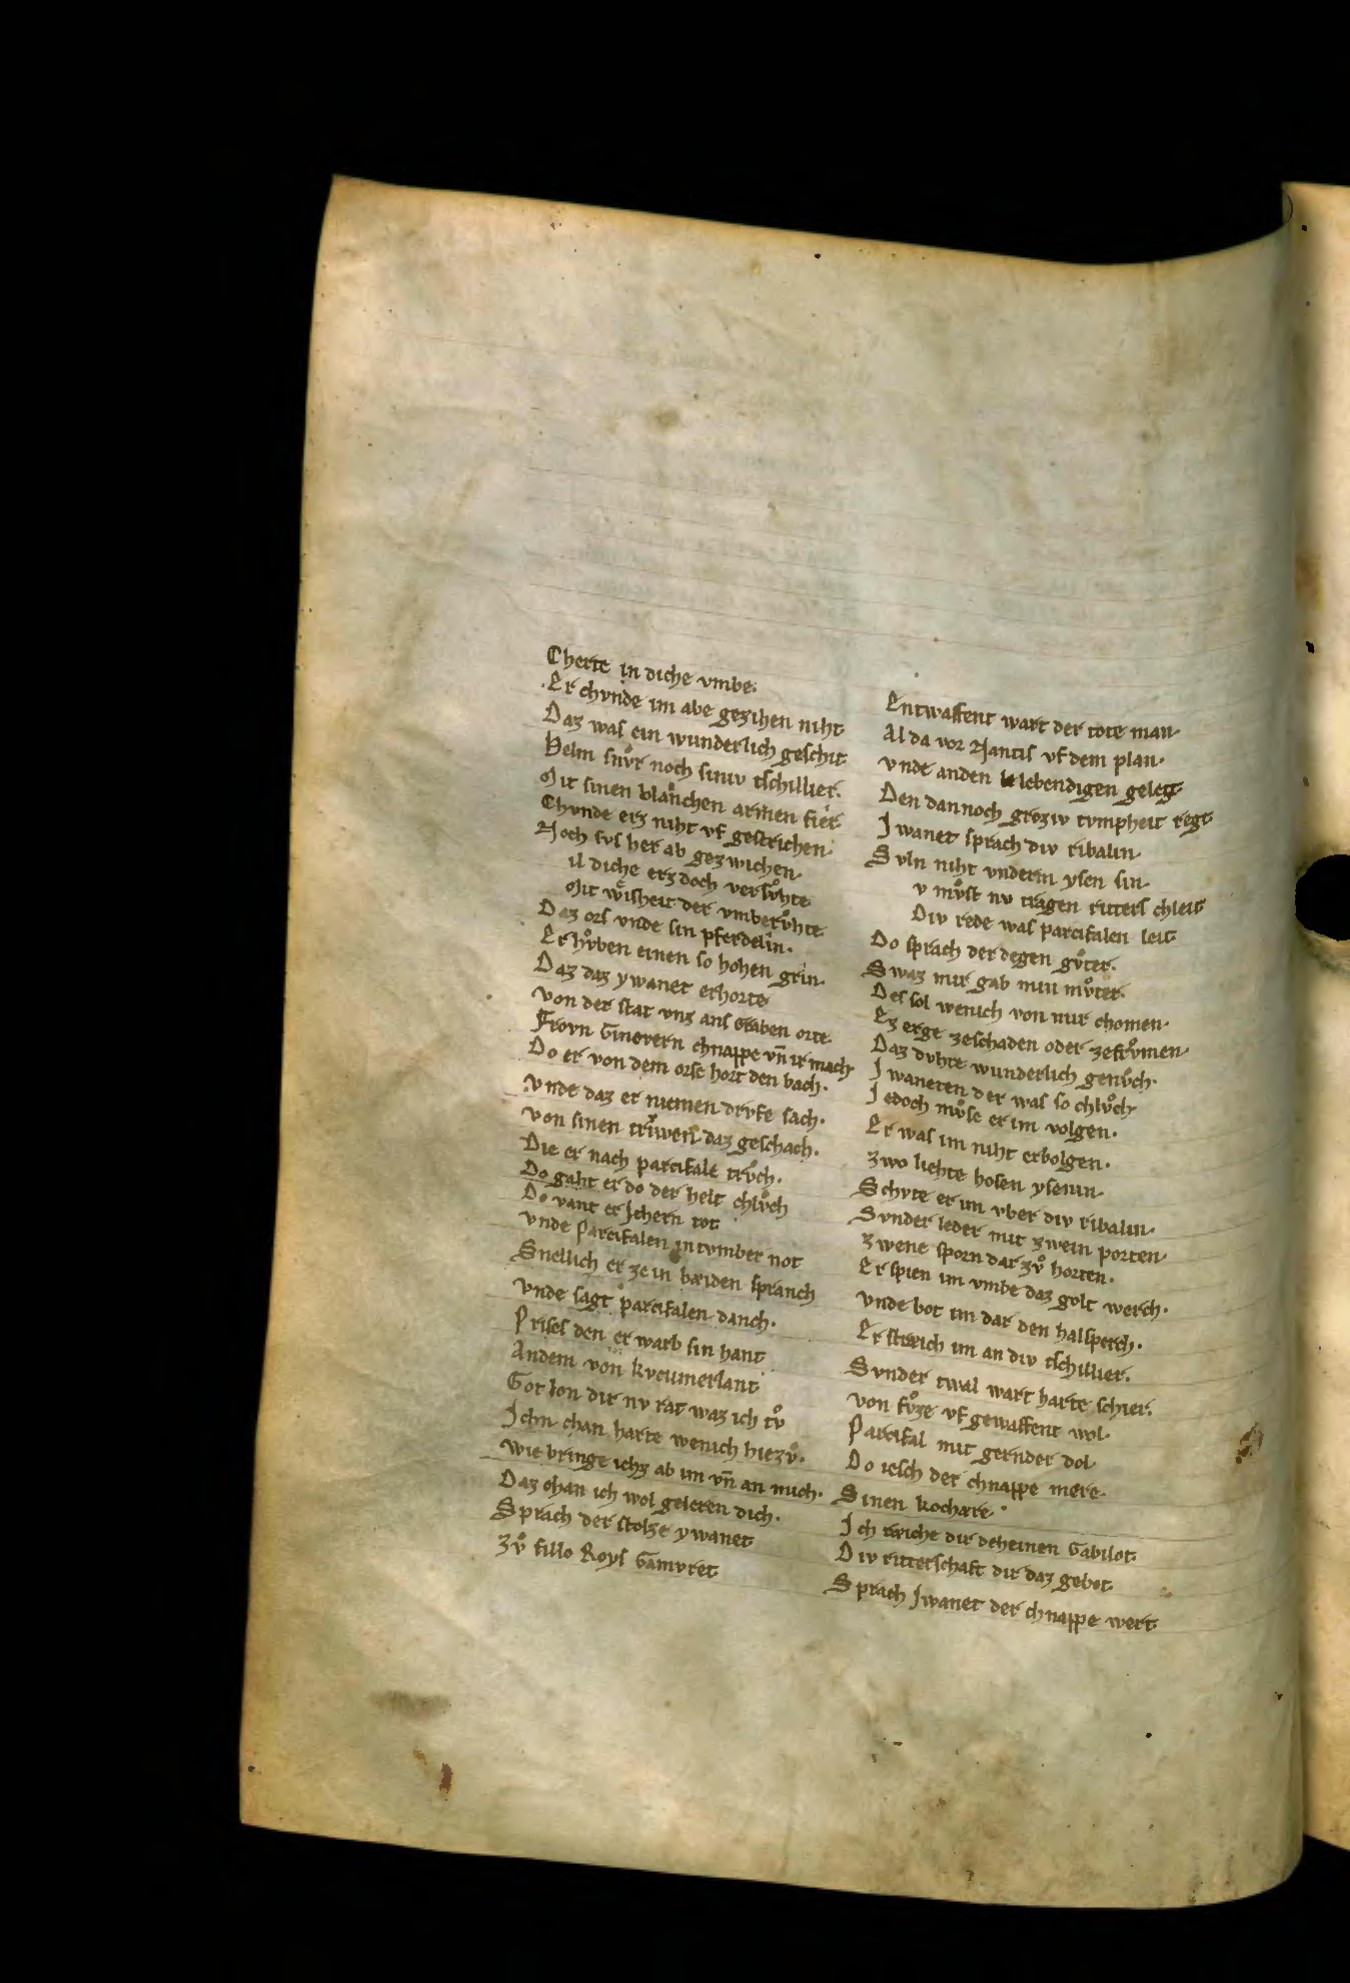 Cherte in diche vmbe.
Er chvnde im abe gezihen niht
Daz was ein wunderlich geschiht
Helm snvͦr noch siniv tschillier.
Mit sinen blanchen armen fier
Chvnde erz niht vf gestrichen.
Noch svs her ab gezwichen.
il diche erz doch versvͦhte
Mit wͤisheit der vmbervͦhte.
Daz ors vnde sin pferdelin.
Er hvͦben einen so hohen grin.
Daz daz ywanet erhorte
von der stat vnz ans Graben orte.
Frovn Ginovern chnappe vn̄ ir mach
Do er von dem orse hort den bach.
vnde daz er niemen drvfe sach.
von sinen triwen daz geschach.
Die er nach parcifale trvͦch.
Do gaht er do der helt chlvͦch
Do vant er Jthern tot
vnde Parcifalen in tvmber not
Snellich er ze in bæiden spranch
vnde sagt parcifalen danch.
Prises den er warb sin hant
Andem von kvcumerlant
Got lon dir nv rat waz ich tvͦ
Ichn chan harte wenich hiezvͦ.
wie bringe ichz ab im vn̄ an mich.
Daz chan ich wol geleren dich.
Sprach der stolze ywanet
Zvͦ fillo Roys Gamvret
Entwaffent wart der tote man
Al da vor Nantis vf dem plan.
vnde anden lebendigen geleget
Den dannoch groziv tvmpheit regt
Jwanet sprach div ribalin
Svln niht vnderm ysen sin.
v mvͦst nv tragen ritters chleit
Div rede was parcifalen leit
Do sprach der degen gvͦter.
Swaz mir gab min mvͦter.
Des sol wenich von mir chomen.
Ez erge zeschaden oder zefrvͦmen.
Daz dvhte wunderlich genvͦch.
Jwaneten der was so chlvͦch
Jedoch mvͦse er im volgen.
Er was im niht erbolgen.
Zwo liehte hosen ysenin
Schvte er im vber div ribalin.
Svnder leder mit zwein porten
Zwene sporn dar zvͦ horten.
Er spien im vmbe daz golt werch.
vnde bot im dar den halsperch.
Er strich im an div tschillier.
Svnder twal wart harte schier.
von fvͦze vf gewaffent wol
Parcifal mit gernder dol
Do iesch der chnappe mere
Sinen kochære.
Ich reiche dir deheinen Gabilot
Div ritterschaft dir daz gebot
Sprach Jwanet der chnappe wert